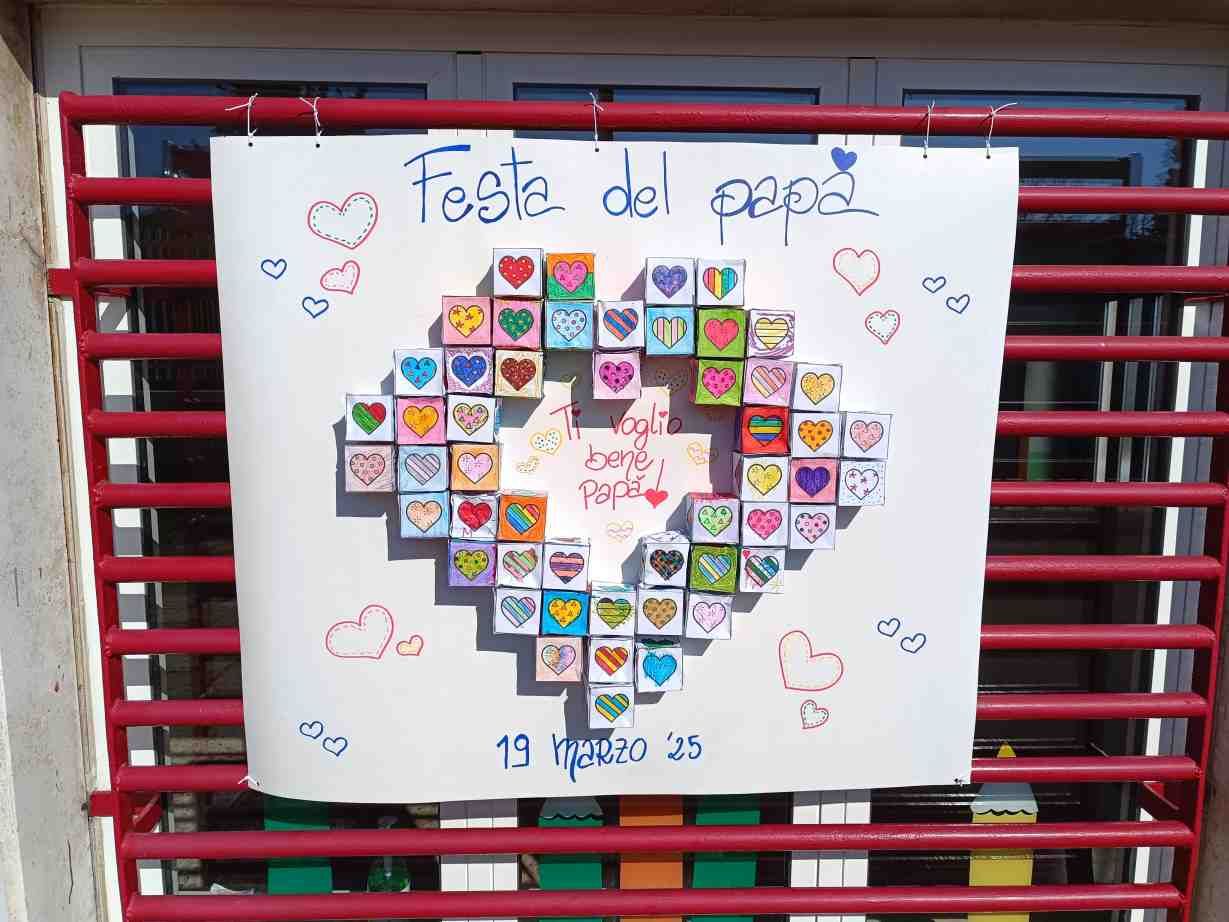 Festa del papà
Ti voglio
bene
Papà!
19 MARZO '25